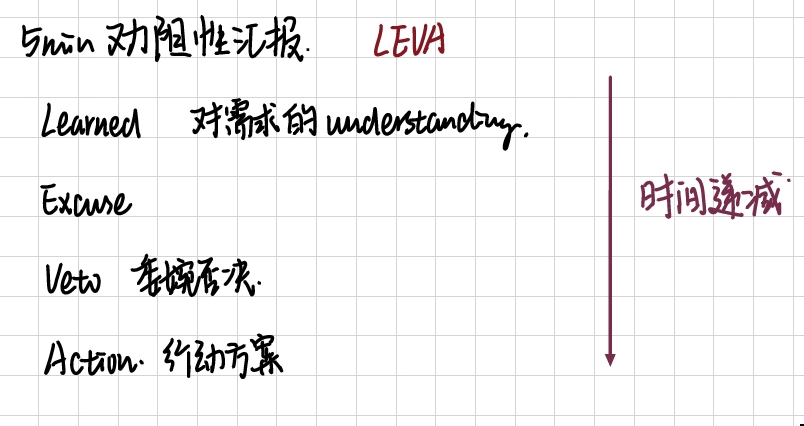 5min 劝阻性汇报. LEVA
Learned 对需求的 understanding.
Excuse
时间递减
Veto 委婉否决.
Action. 行动方案